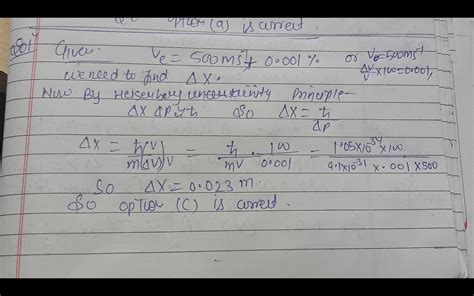 option (a) is correct.
Sol Given: Ve = 500 ms⁻¹ ± 0.001 % or Ve = 500 ms⁻¹
we need to find ΔX. ΔV/V × 100 = 0.001,
Now By Heisenberg uncertainty Principle –
ΔX ΔP ≈ ħ So ΔX = ħ/ΔP
ΔX = ħ(V)/m(ΔV)V = ħ/mV · 100/0.001 = 1.05×10⁻³⁴×100/9.1×10⁻³¹ × .001 × 500
So ΔX = 0.023 m.
So option (C) is correct.